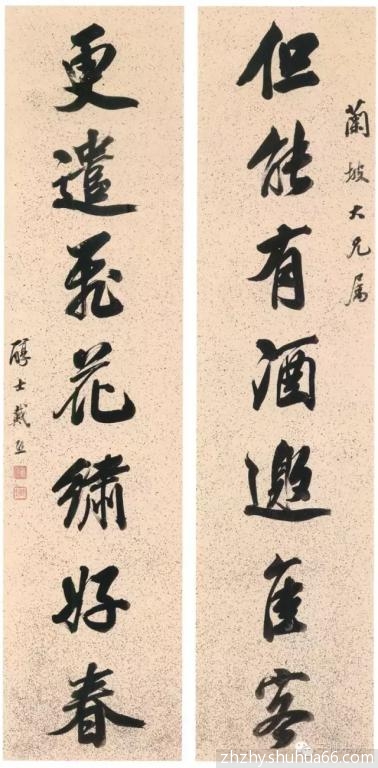 蘭坡大兄属
但能有酒邀佳客
更遣飛花繡好春
醇士戴熙
zhzhyshuhua66.com